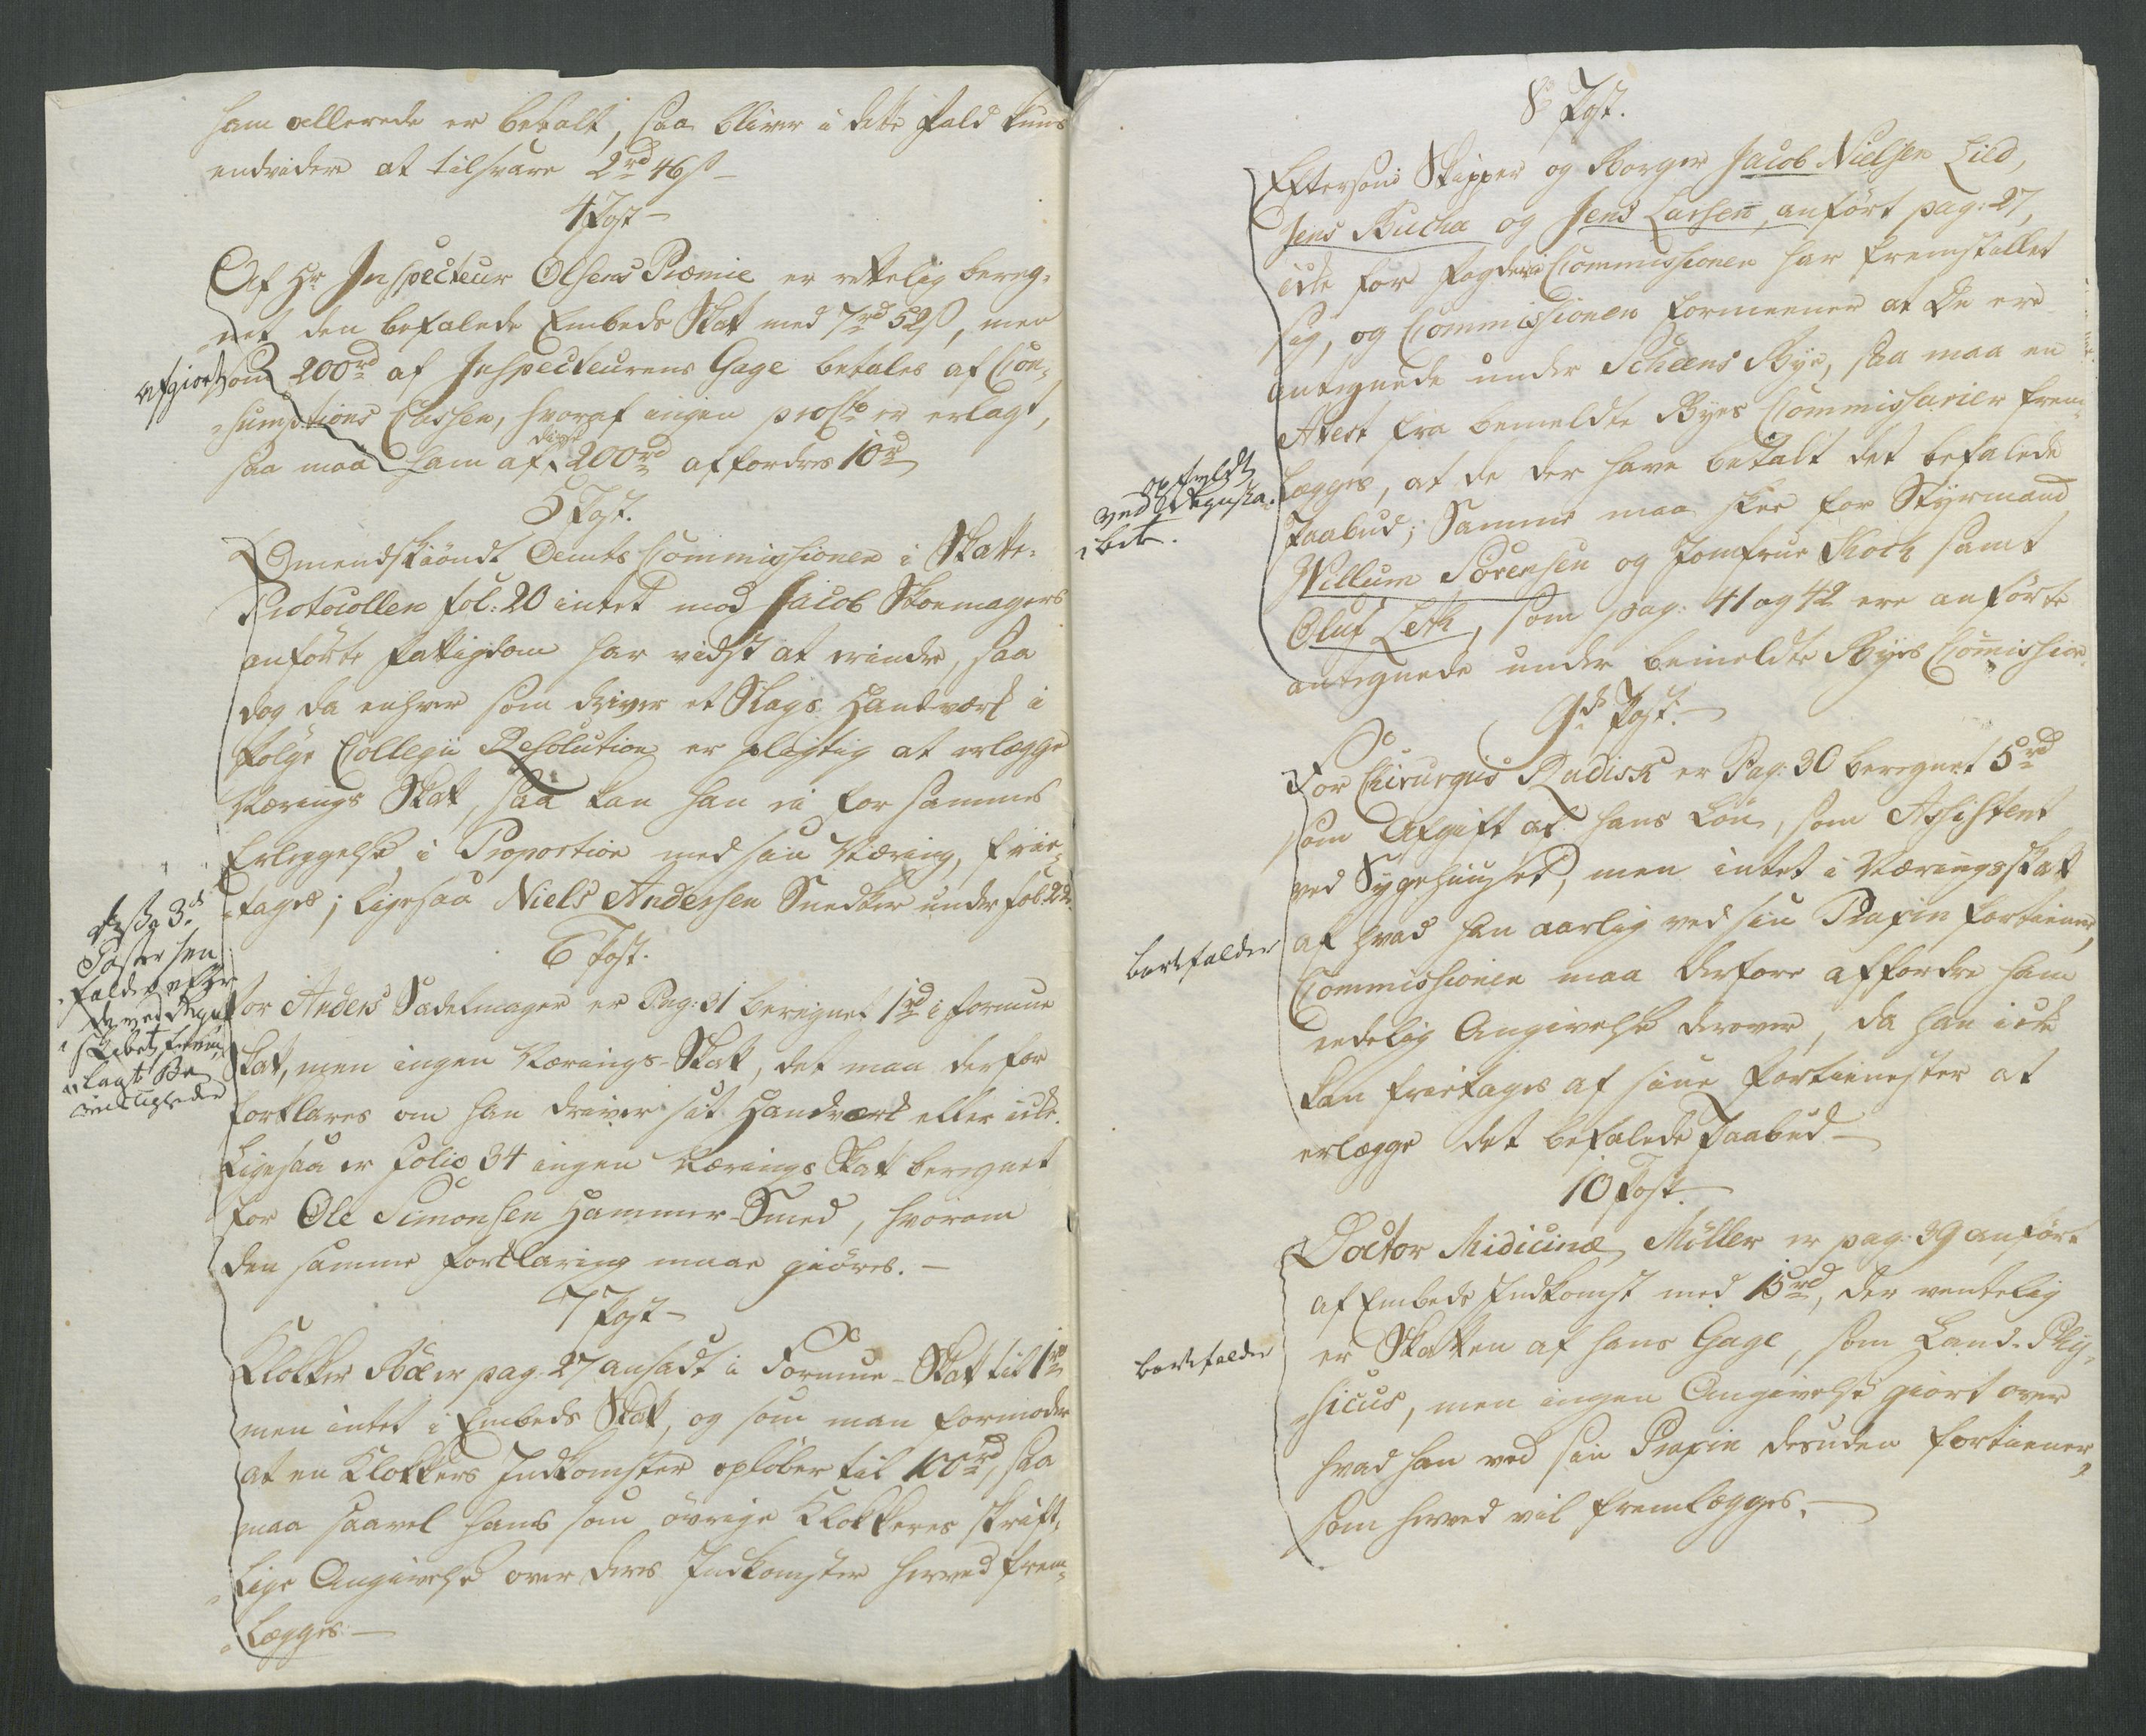 ham allerede er betalt, saa bliver i dette fald kuns
endvidere at tilsvare 2rd 46s
4 Post
Af Hr Inspecteur Olsens Præmie er rettelig bereg-
net den befalede Embeds Skat med 7rd 52s, men
som 200rd af Inspecteurens Gage betales af Con-
sumptions Cassen, hvoraf ingen proCto er erlagt,
saa maa ham af disse 200rd affordres 10rd
afgiort
5 Post.
Omendskiöndt Amts Commissionen i Skatte-
Protocollen fol: 20 intet mod Jacob Skomagers
anförte fattigdom har vidst at erindre, saa
dog da enhver som driver et Slags Handverk i
fölge Collegii Resolution er pligtig at erlægge
Nærings Skat, saa kan han ei for sammes
Erleggelse i Proportion med sin Næring, frie-
tages; ligesaa Niels Andersen Snedker under fol: 22.
6 Post.
For Anders Sadelmager er Pag: 31 beregnet 1rd i formue
Skat, men ingen Nærings-Skat, det maa derfor
forklares om han driver sit Handverk eller icke.
Ligesaa er folio 34 ingen Nærings Skat beregnet
for Ole Simonsen Hammer-Smed, hvorom
den samme forklaring maae giöres.
disse 3de
Poster hen
falder efter
de ved Regn
skabet frem
lagte Be
viisligheder
7 Post
Klokker Böe er pag: 27 ansadt i Formue-Skat til 1rd
men intet i Embeds Skat, og som man formoder
at en Klokkers Indkomster oplöber til 100rd, saa
maa saavel hans som övrige Klokkeres skrift-
lige Angivelse over deres Indkomster herved frem-
lægges.
8 Post.
Eftersom Skipper og Borger Jacob Nielsen Lied,
Jens Bucha og Jens Larsen, anfört pag: 27,
icke for Fogderi Commissionen har fremstillet
sig, og Commissionen formeener at De ere
antegnede under Scheens Bye, saa maa en
Atest fra bemeldte Byes Commissarier frem-
lægges, at de der have betalt det befalede
Paabud; Samme maa skee for Styrmand
Willum Sörensen og Jomfrue Koch samt
Oluf Leth, som pag: 41 og 42 ere anförte
antegnede under bemeldte Byes Commission.
opfyldt
ved Regnska-
bet.
9de Post.
For Chirurgus Radisk er Pag: 30 beregnet 5rd
som Afgift af hans Lön, som Assistent
ved Sygehuuset, men intet i Næringsskat
af hvad han aarlig ved sin Praxin fortiener,
Commissionen maa derfore affordre ham
eedelig Angivelse derover, da han icke
kan frietages af sine fortienester at
erlægge det befalede Paabud
bortfalder
10 Post.
Doctor Midicinæ Möller er pag: 39 anfört
af Embeds Indkomst med 15rd, der ventelig
er Skatten af hans Gage, som Land-Phy-
sicus, men ingen Angivelse giort over
hvad han ved sin Praxin desuden fortiener,
som herved vil fremlægges.
bortfalder